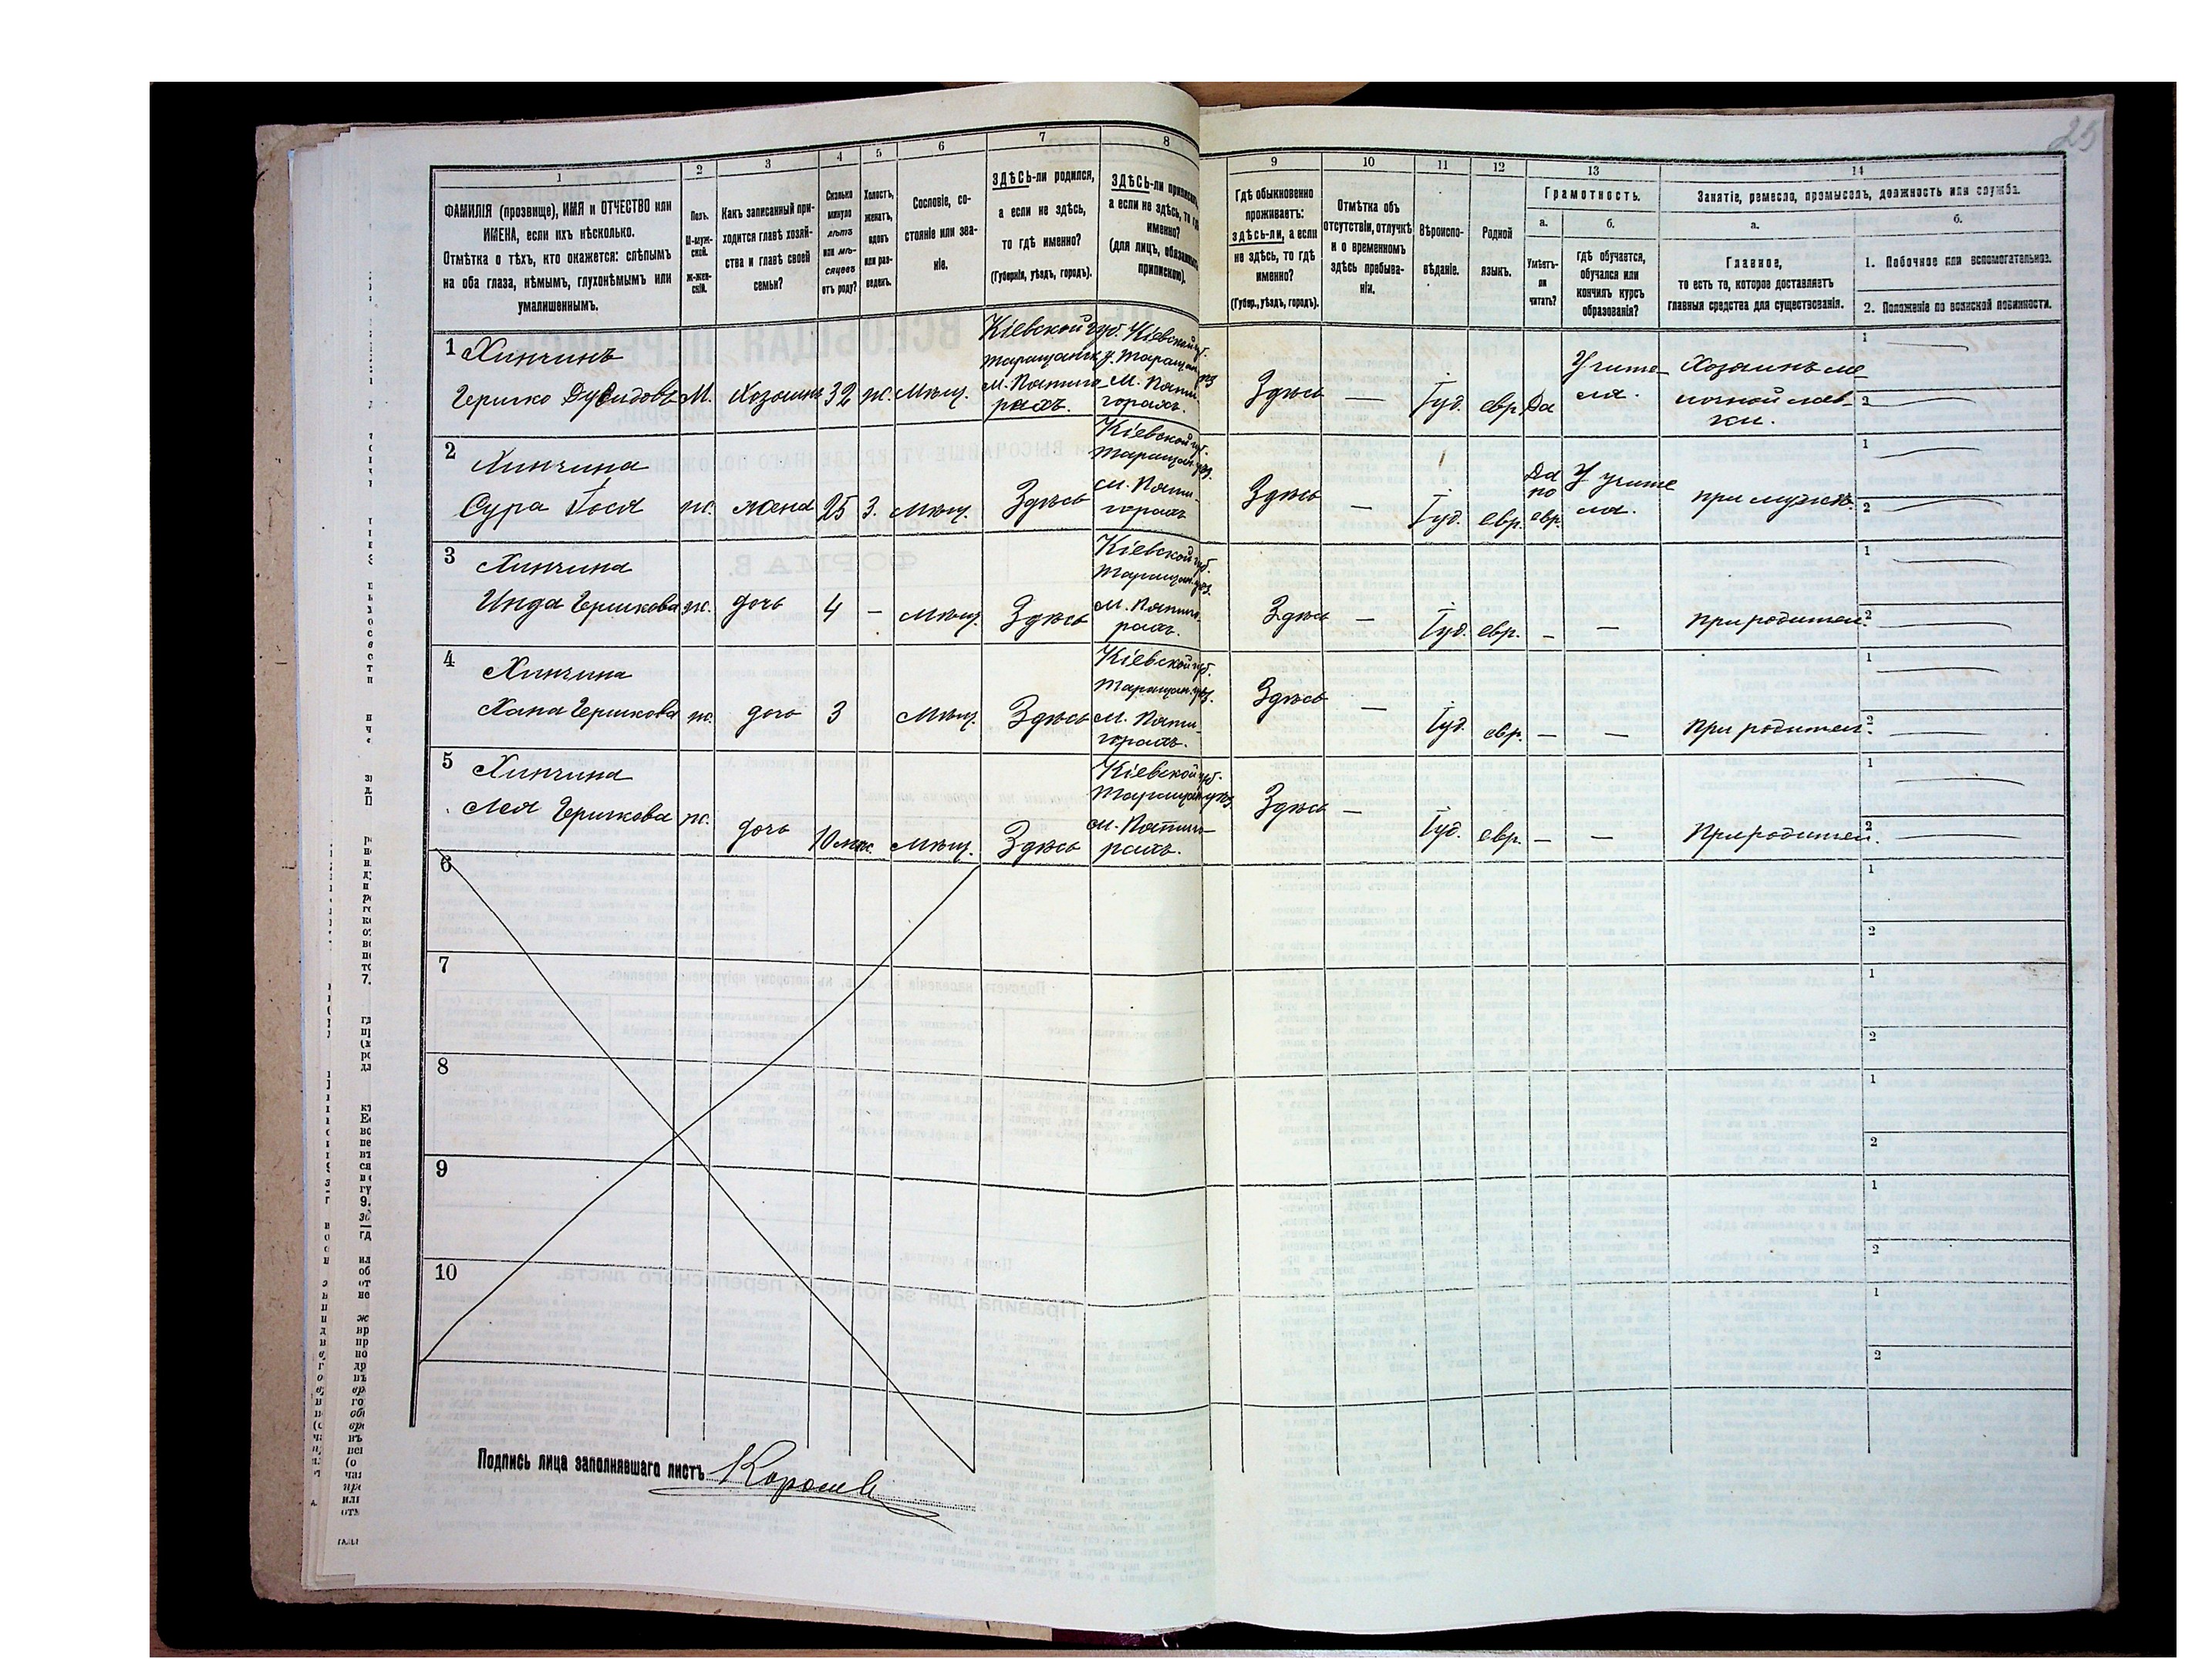 25
1
2
3
4
5
6
7
8
9
10
11
12
13
14
ФАМИЛІЯ (прозвище), ИМЯ и ОТЧЕСТВО или
ИМЕНА, если ихъ нѣсколько.
Отмѣтка о тѣхъ, кто окажется: слѣпымъ
на оба глаза, нѣмымъ, глухонѣмымъ или
умалишеннымъ.
Полъ.
М-муж-
ской.
Ж-жен-
скій.
Какъ записанный при-
ходится главѣ хозяй-
ства и главѣ своей
семьи?
Сколько
минуло
лѣтъ
или мѣ-
сяцевъ
отъ роду?
Холостъ,
женатъ,
вдовъ
или раз-
веденъ.
Сословіе, со-
стояніе или зва-
ніе.
ЗДѢСЬ-ли родился,
а если не здѣсь,
то гдѣ именно?
(Губернія, уѣздъ, городъ).
ЗДѢСЬ-ли приписанъ,
а если не здѣсь, то гдѣ
именно?
(для лицъ, обязанныхъ
припискою).
Гдѣ обыкновенно
проживаетъ:
здѣсь-ли, а если
не здѣсь, то гдѣ
именно?
(Губер., уѣздъ, городъ).
Отмѣтка объ
отсутствіи, отлучкѣ
и о временномъ
здѣсь пребыва-
ніи.
Вѣроиспо-
вѣданіе.
Родной
языкъ.
Грамотность.
а.
б.
Умѣетъ-
ли
читать?
гдѣ обучается,
обучался или
кончилъ курсъ
образованія?
Занятіе, ремесло, промыселъ, должность или служба.
а.
б.
Главное,
то есть то, которое доставляетъ
главныя средства для существованія.
1. Побочное или вспомогательное.
2. Положеніе по воинской повинности.
1 Хинчинъ
Гершко Дувидовъ М. Хозяинъ 32 ж. Мѣщ.
Кіевской губ.
Таращанск. у.
м. Пятиго-
рахъ.
Кіевской губ.
Таращан. уѣз
м. Пяти-
горахъ.
Здѣсь — Іуд. евр. Да
Учите-
ля.
Хозяинъ ме
лочной лав-
ки.
1 —
2 —
2 Хинчина
Сура Тося ж. жена 25 З. Мѣщ. Здѣсь
Кіевской губ.
Таращан. уѣз.
м. Пяти-
горахъ
Здѣсь — Іуд. евр.
Да
по
евр.
У учите
ля.
при мужѣ.
1 —
2 —
3 Хинчина
Инда Гершкова ж. дочь 4 — Мѣщ. Здѣсь
Кіевской губ.
Таращан. уѣз.
м. Пятиго-
рахъ.
Здѣсь — Іуд. евр. — — при родител.
1 —
2 —
4 Хинчина
Хана Гершкова ж. дочь 3 Мѣщ. Здѣсь
Кіевской губ.
Таращан. уѣз.
м. Пяти-
горахъ.
Здѣсь — Іуд. евр. — — при родител.
1 —
2 —
5 Хинчина
Лея Гершкова ж. дочь 10 мѣс. Мѣщ. Здѣсь
Кіевской губ.
Таращан. уѣз.
м. Пятиго-
рахъ.
Здѣсь — Іуд. евр. — — При родител.
1 —
2 —
6
1
2
7
1
2
8
1
2
9
1
2
10
1
2
Подпись лица заполнявшаго листъ